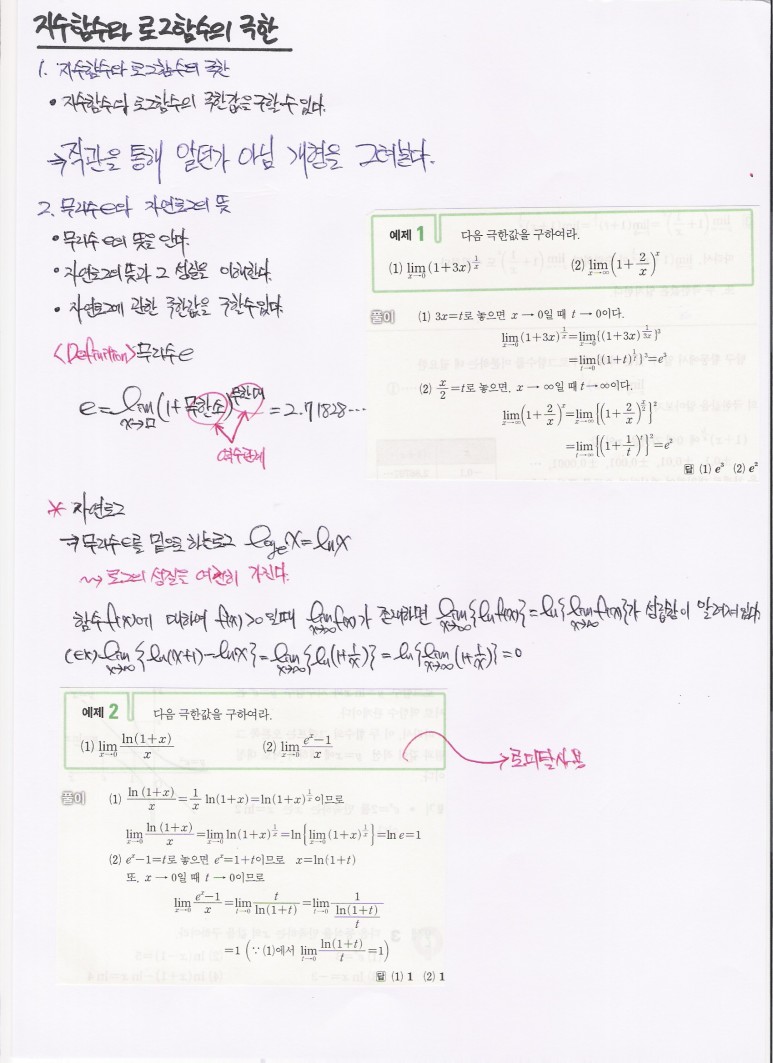 지수함수와 로그함수의 극한
1. 지수함수와 로그함수의 극한
• 지수함수와 로그함수의 극한값을 구할 수 있다.
→ 직관을 통해 알던가 아님 개형을 그려본다.
2. 무리수 e와 자연로그의 뜻
• 무리수 e의 뜻을 안다.
• 자연로그의 뜻과 그 성질을 이해한다.
• 자연로그에 관한 극한값을 구할 수 있다.
<Definition> 무리수 e
e = lim_{x→□} (1+무한소)^{무한대} = 2.71828⋯
역수관계
예제 1 다음 극한값을 구하여라.
(1) lim_{x→0} (1+3x)^{1/x} (2) lim_{x→∞} (1+2/x)^x
풀이 (1) 3x=t로 놓으면 x → 0일 때 t → 0이다.
lim_{x→0} (1+3x)^{1/x} = lim_{x→0} {(1+3x)^{1/3x}}^3
= lim_{t→0} {(1+t)^{1/t}}^3 = e^3
(2) x/2 = t로 놓으면, x → ∞일 때 t → ∞이다.
lim_{x→∞} (1+2/x)^x = lim_{x→∞} {(1+2/x)^{x/2}}^2
= lim_{t→∞} {(1+1/t)^t}^2 = e^2
답 (1) e^3 (2) e^2
* 자연로그
→ 무리수 e를 밑으로 하는 로그 log_e x = ln x
~> 로그의 성질을 여전히 가진다.
함수 f(x)에 대하여 f(x)>0 일때 lim_{x→∞} f(x)가 존재하면 lim_{x→∞} {ln f(x)} = ln {lim_{x→∞} f(x)}가 성립함이 알려져 있다.
(ex) lim_{x→∞} {ln(x+1) - ln x} = lim_{x→∞} {ln(1+1/x)} = ln {lim_{x→∞} (1+1/x)} = 0
예제 2 다음 극한값을 구하여라.
(1) lim_{x→0} ln(1+x)/x (2) lim_{x→0} (e^x-1)/x
→ 로피탈 사용
풀이 (1) ln(1+x)/x = 1/x ln(1+x) = ln(1+x)^{1/x} 이므로
lim_{x→0} ln(1+x)/x = lim_{x→0} ln(1+x)^{1/x} = ln {lim_{x→0} (1+x)^{1/x}} = ln e = 1
(2) e^x-1=t로 놓으면 e^x=1+t이므로 x=ln(1+t)
또, x → 0일 때 t → 0이므로
lim_{x→0} (e^x-1)/x = lim_{t→0} t/ln(1+t) = lim_{t→0} 1/(ln(1+t)/t)
= 1 (∵ (1)에서 lim_{t→0} ln(1+t)/t = 1)
답 (1) 1 (2) 1